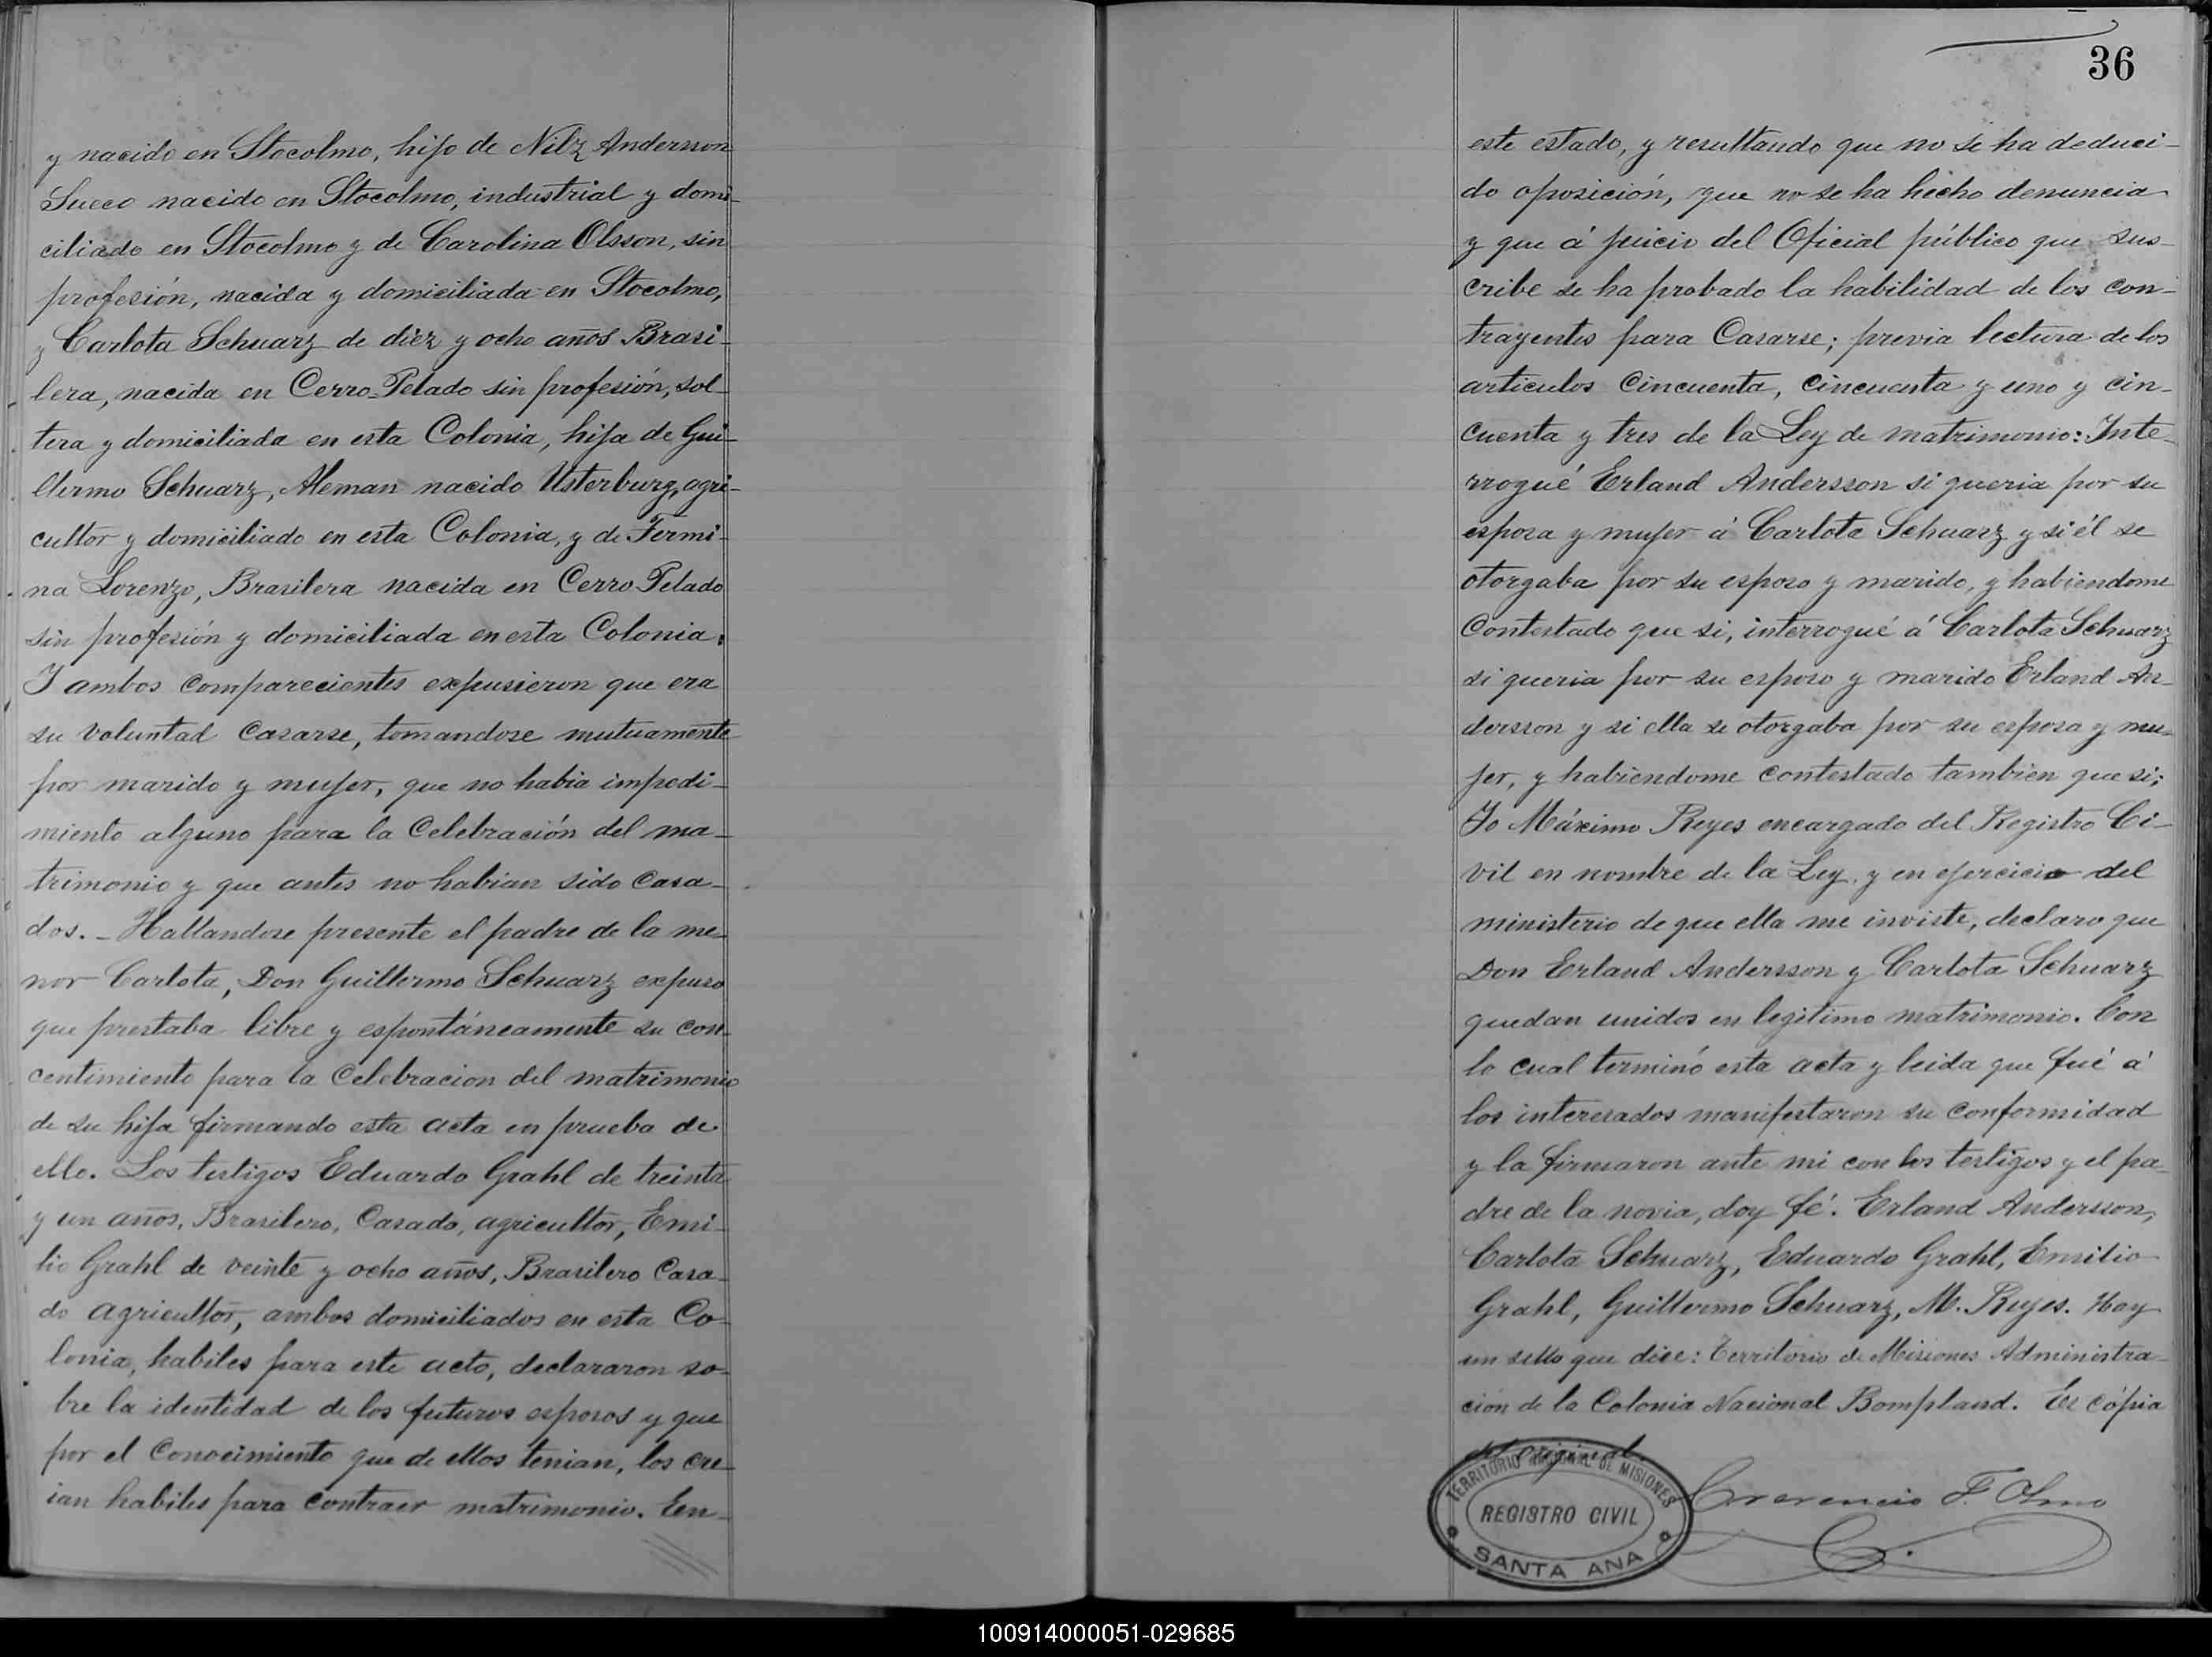 y nacido en Stocolmo, hijo de Nilz Andersson
Sueco nacido en Stocolmo, industrial y domi-
ciliado en Stocolmo y de Carolina Olsson, sin
profesión, nacida y domiciliada en Stocolmo,
y Carlota Schuarz de diez y ocho años Brasi-
lera, nacida en Cerro-Pelado sin profesión, sol-
tera y domiciliada en esta Colonia, hija de Gui-
llermo Schuarz, Aleman nacido Usterburg, agri-
cultor y domiciliado en esta Colonia, y de Fermi-
na Lorenzo, Brasilera nacida en Cerro-Pelado
sin profesión y domiciliada en esta Colonia.
Y ambos comparecientes expusieron que era
su voluntad casarse, tomandose mutuamente
por marido y mujer, que no habia impedi-
miento alguno para la Celebración del ma-
trimonio y que antes no habian sido casa-
dos. - Hallandose presente el padre de la me-
nor Carlota, Don Guillermo Schuarz expuso
que prestaba libre y espontáneamente su con-
centimiento para la Celebracion del matrimonio
de su hija firmando esta acta en prueba de
ello. Los testigos Eduardo Grahl de treinta
y un años, Brasilero, Casado, agricultor, Emi-
lio Grahl de veinte y ocho años, Brasilero Casa-
do agricultor, ambos domiciliados en esta Co-
lonia, habiles para este acto, declararon so-
bre la identidad de los futuros esposos y que
por el Conocimiento que de ellos tenian, los cre-
ian habiles para contraer matrimonio. En-
36
este estado, y resultando que no se ha deduci-
do oposición, que no se ha hecho denuncia
y que á juicio del Oficial público que sus-
cribe se ha probado la habilidad de los con-
trayentes para Casarse; previa lectura de los
articulos Cincuenta, Cincuenta y uno y cin-
cuenta y tres de la Ley de matrimonio: Inte-
rrogué Erland Andersson si queria por su
esposa y mujer á Carlota Schuarz y si él se
otorgaba por su esposo y marido, y habiendome
Contestado que si, interrogué á Carlota Schuarz
si queria por su esposo y marido Erland An-
dersson y si ella se otorgaba por su esposa y mu-
jer, y habiendome contestado tambien que si;
Yo Máximo Reyes encargado del Registro Ci-
vil en nombre de la Ley, y en ejercicio del
ministerio de que ella me inviste, declaro que
Don Erland Andersson y Carlota Schuarz
quedan unidos en legitimo matrimonio. Con
lo cual terminó esta acta y leida que fué á
los interesados manifestaron su conformidad
y la firmaron ante mi con los testigos y el pa-
dre de la novia, doy fé. Erland Andersson,
Carlota Schuarz, Eduardo Grahl, Emilio
Grahl, Guillermo Schuarz, M. Reyes. Hay
un sello que dice: Territorio de Misiones Administra-
ción de la Colonia Nacional Bompland. Es cópia
del original.
TERRITORIO NACIONAL DE MISIONES
REGISTRO CIVIL
SANTA ANA
F. Olmo
100914000051-029685